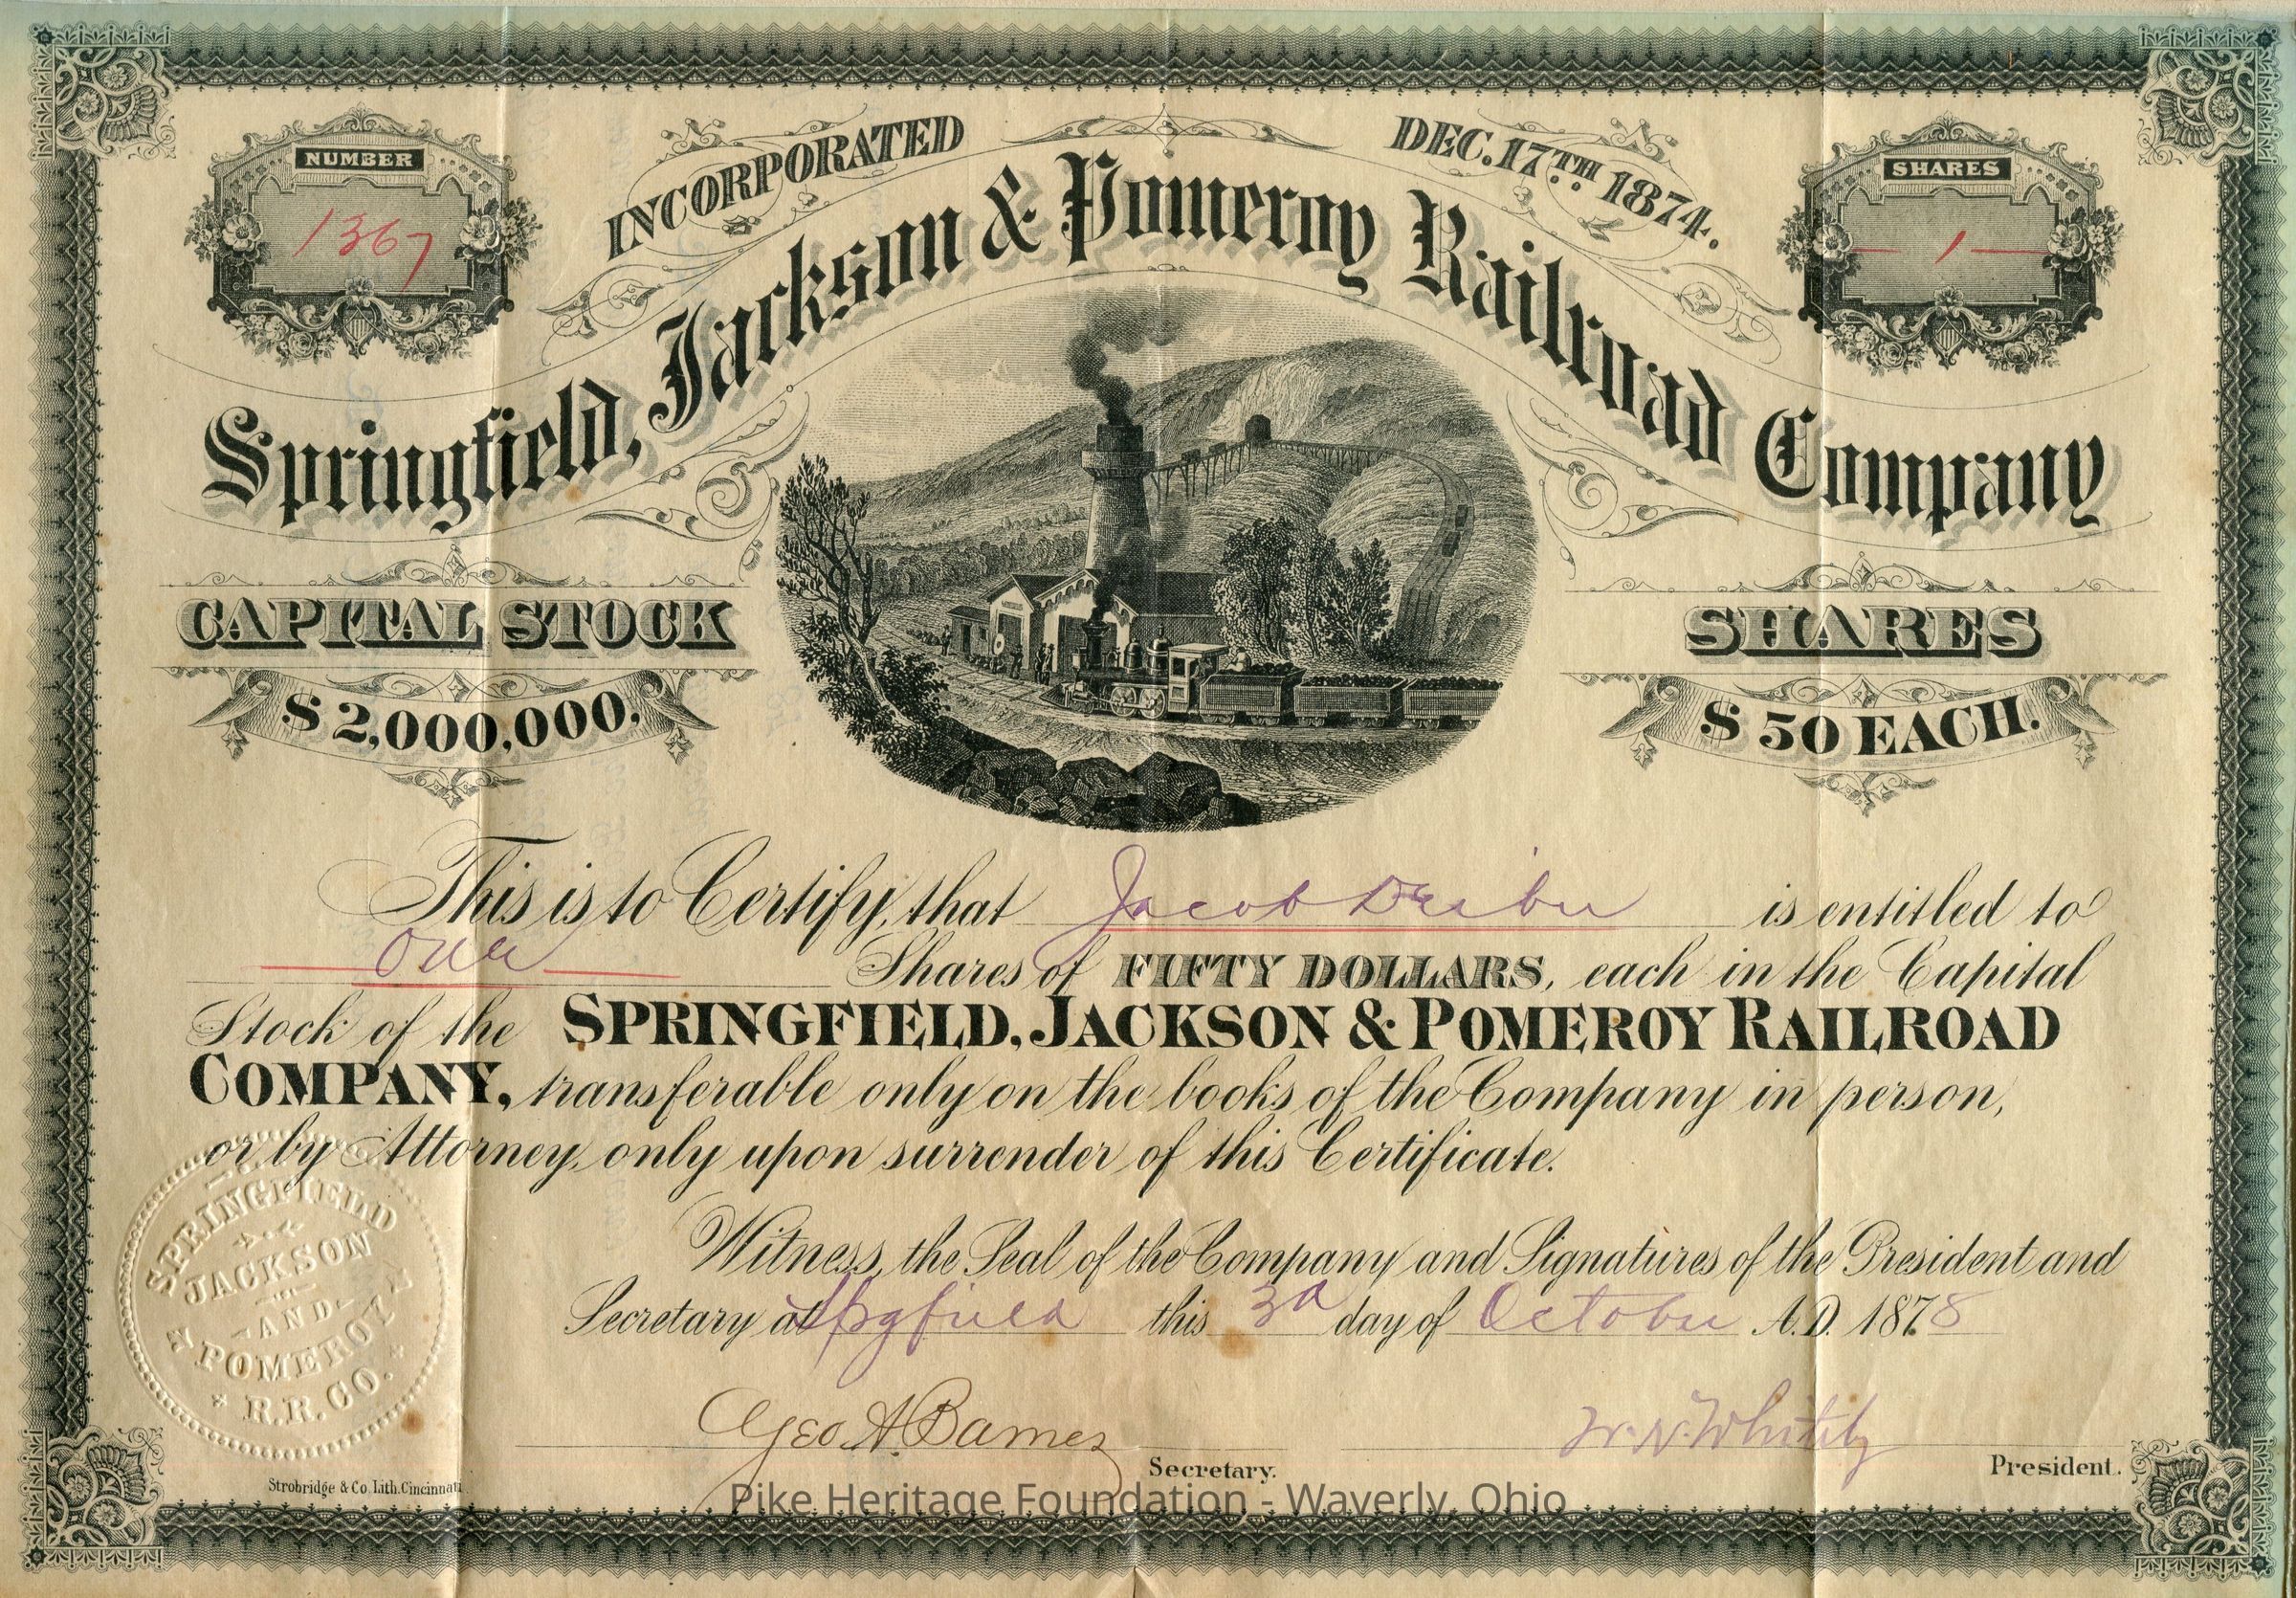 NUMBER
1367
INCORPORATED DEC. 17TH 1874.
SHARES
1
Springfield, Jackson & Pomeroy Railroad Company
CAPITAL STOCK
$2,000,000.
SHARES
$50 EACH.
This is to Certify, that Jacob is entitled to
One Shares of FIFTY DOLLARS, each in the Capital
Stock of the SPRINGFIELD, JACKSON & POMEROY RAILROAD
COMPANY, transferable only on the books of the Company in person,
or by Attorney, only upon surrender of this Certificate.
Witness, the Seal of the Company and Signatures of the President and
Secretary at Spgfield this 3d day of October A.D. 1878
SPRINGFIELD
JACKSON
AND
POMEROY
R.R. CO.
Geo A. Barnes
Secretary.
President.
Strobridge & Co. Lith. Cincinnati
Pike Heritage Foundation - Waverly, Ohio